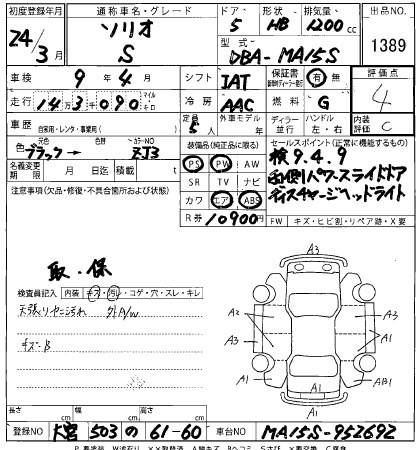 初度登録年月 通称車名・グレード ドア 形状 排気量 出品NO.
24/3月 ソリオ S 5 HB 1200cc 1389
型式 DBA-MA15S
車検 9年4月 シフト IAT 保証書 有 無 評価点 4
走行 14万3千090 マイル キロ 冷房 AAC 燃料 G
車歴 自家用・レンタ・事業用( ) 定員 5人 外車モデル 年 ディーラー 並行 ハンドル 左・右 内装評価 C
色 元色 ブラック→ 色替 カラーNO ZJ3
名義変更期限 月 日迄 積載量 t
装備品(純正品に限る)
PS PW AW
SR TV ナビ
カワ エア ABS
R券 10900円
セールスポイント(正常に機能するもの)
検9.4.9
両側パワースライドドア
ディスチャージヘッドライト
FW キズ・ヒビ割・リペア跡・X要
注意事項(欠品・修復・不具合箇所および状態)
取・保
検査員記入 内装 キズ・汚レ・コゲ・穴・スレ・キレ
天張りヤニ汚れ 外A/W
キズ-B
A3
A2
A3
A1
A3
A1
A1
A1
AB1
A1
長さ cm 幅 cm 高さ cm
登録NO 大宮 503 の 61-60 車台NO MA15S-952692